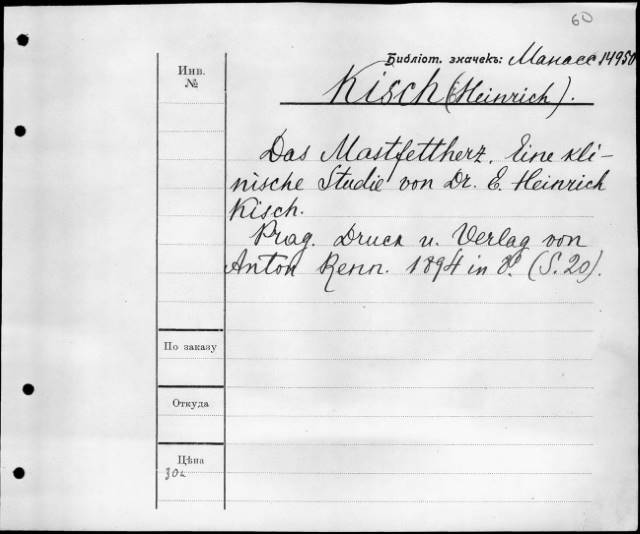 60
Библіот. значекъ: Манасс 14950
Инв.
№
Kisch (Heinrich).
Das Mastfettherz. Eine kli-
nische Studie von Dr. E. Heinrich
Kisch.
Prag. Druck u. Verlag von
Anton Renn. 1894 in 8º. (S. 20).
По заказу
Откуда
Цѣна
30к